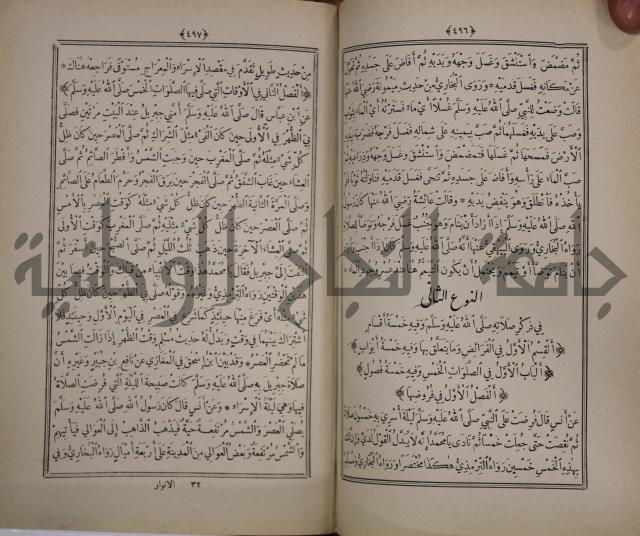 ﴿٤٩٦﴾
ثم مضمض واستنشق وغسل وجهه ويديه ثم أفاض على جسده ثم تحول
عن مكانه فغسل قدميه * وروى البخاري من حديث ميمونة رضي الله عنها
قالت وضعت للنبي صلى الله عليه وسلم غسلا
وصب على يديه فغسلهما ثم صب بيمينه على شماله فغسل فرجه فضرب بيده
الأرض فمسحها ثم غسلها فتمضمض واستنشق وغسل وجهه وذراعيه
صب الماء على رأسه وأفاض على جسده ثم تنحى فغسل قدميه فناولته ثوبا
يأخذه فانطلق وهو ينفض يديه * وقالت عائشة رضي الله عنها كان رسول
الله صلى الله عليه وسلم إذا أراد أن ينام وهو جنب غسل فرجه وتوضأ للصلاة
رواه البخاري وروى البيهقي عنها أنه صلى الله عليه وسلم كان إذا أجنب
أن ينام توضأ أو تيمم ويحتمل أن يكون التيمم هنا عند عسر وجود الماء *
النوع الثاني
في ذكر صلاته صلى الله عليه وسلم وفيه خمسة أقسام
﴿القسم الأول في الفرائض وما يتعلق بها وفيه خمسة أبواب﴾
﴿الباب الأول في الصلوات الخمس وفيه خمسة فصول﴾
﴿الفصل الأول في فرضها﴾
عن أنس قال فرضت على النبي صلى الله عليه وسلم ليلة أسري به خمسون صلاة
ثم نقصت حتى جعلت خمسا ثم نادى يا محمد إنه لا يبدل القول لدي وإن لك
بهذه الخمس خمسين رواه الترمذي هكذا مختصرا ورواه البخاري ومسلم
﴿٤٩٧﴾
من حديث طويل تقدم في مقصد الإسراء والمعراج مستوفى فراجعه هناك *
﴿الفصل الثاني في الأوقات التي صلى فيها الصلوات الخمس صلى الله عليه وسلم﴾
عن ابن عباس قال صلى الله عليه وسلم أمني جبريل عند البيت مرتين فصلى
في الظهر في الأولى حين كان الفيء مثل الشراك ثم صلى العصر حين كان ظل
كل شيء مثله ثم صلى المغرب حين وجبت الشمس وأفطر الصائم ثم صلى
العشاء حين غاب الشفق ثم صلى الفجر حين برق الفجر وحرم الطعام على الصائم
وصلى المرة الثانية الظهر حين كان ظل كل شيء مثله كوقت العصر بالأمس
ثم صلى العصر حين كان ظل كل شيء مثليه ثم صلى المغرب كوقت الأولى
ثم صلى العشاء الآخرة حين ذهب ثلث الليل ثم صلى الصبح حين أسفر ثم
التفت إلي جبريل فقال يا محمد هذا وقت الأنبياء من قبلك والوقت فيما بين
هذين الوقتين رواه الترمذي وغيره * وقوله صلى بي الظهر حين كان ظل كل
شيء مثله أي فرغ منها حينئذ كما شرع في العصر في اليوم الأول وحينئذ فلا
اشتراك بينهما في وقت ويدل له حديث مسلم وقت الظهر إذا زالت الشمس
ما لم تحضر العصر * وقد بين ابن إسحق في المغازي عن نافع بن جبير وغيره أن
صلاة جبريل به صلى الله عليه وسلم كانت صبيحة الليلة التي فرضت الصلاة
فيها وهي ليلة الإسراء * وعن أنس قال كان رسول الله صلى الله عليه وسلم
يصلي العصر والشمس مرتفعة حية فيذهب الذاهب إلى العوالي فيأتيهم
والشمس مرتفعة وبعض العوالي من المدينة على أربعة أميال رواه البخاري وفي
٣٢ الانوار
جامعة النجاح الوطنية